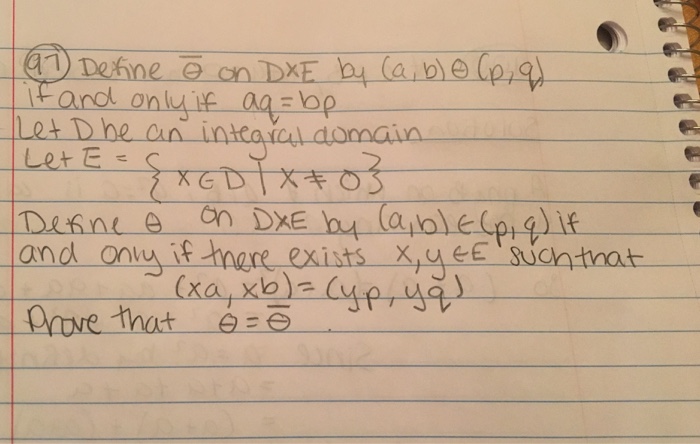 97 Define θ̅ on D×E by (a,b)θ(p,q)
if and only if aq=bp
Let D be an integral domain
Let E = {x∈D | x≠0}
Define θ on D×E by (a,b)∈(p,q) if
and only if there exists x,y∈E such that
(xa,xb)=(yp,yq)
Prove that θ=θ̅.